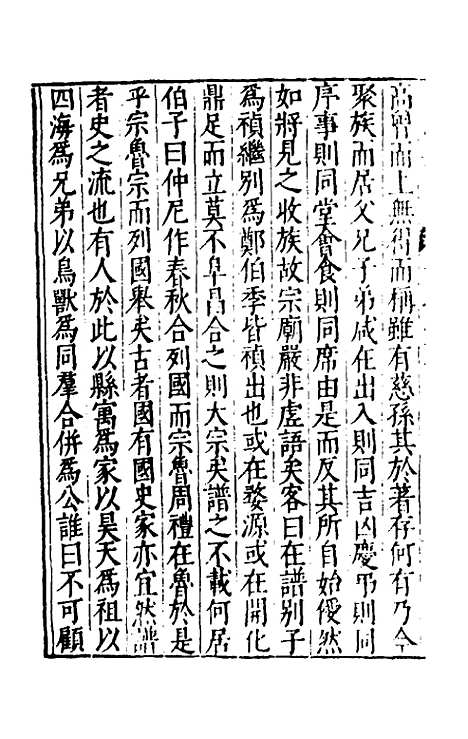 高曾而上無得而稱雖有慈孫其於著存何有乃今
聚族而居父兄子弟咸在出入則同吉凶慶弔則同
序事則同堂會食則同席由是而反其所自始僾然
如將見之收族故宗廟嚴非虛語矣客曰在譜別子
為禎繼別為鄭伯季皆禎出也或在婺源或在開化
鼎足而立莫不阜昌合之則大宗矣譜之不載何居
伯子曰仲尼作春秋合列國而宗魯周禮在魯於是
乎宗魯宗而列國舉矣古者國有國史家亦宜然譜
者史之流也有人於此以縣寓為家以昊天為祖以
四海為兄弟以鳥獸為同羣合併為公誰曰不可顧